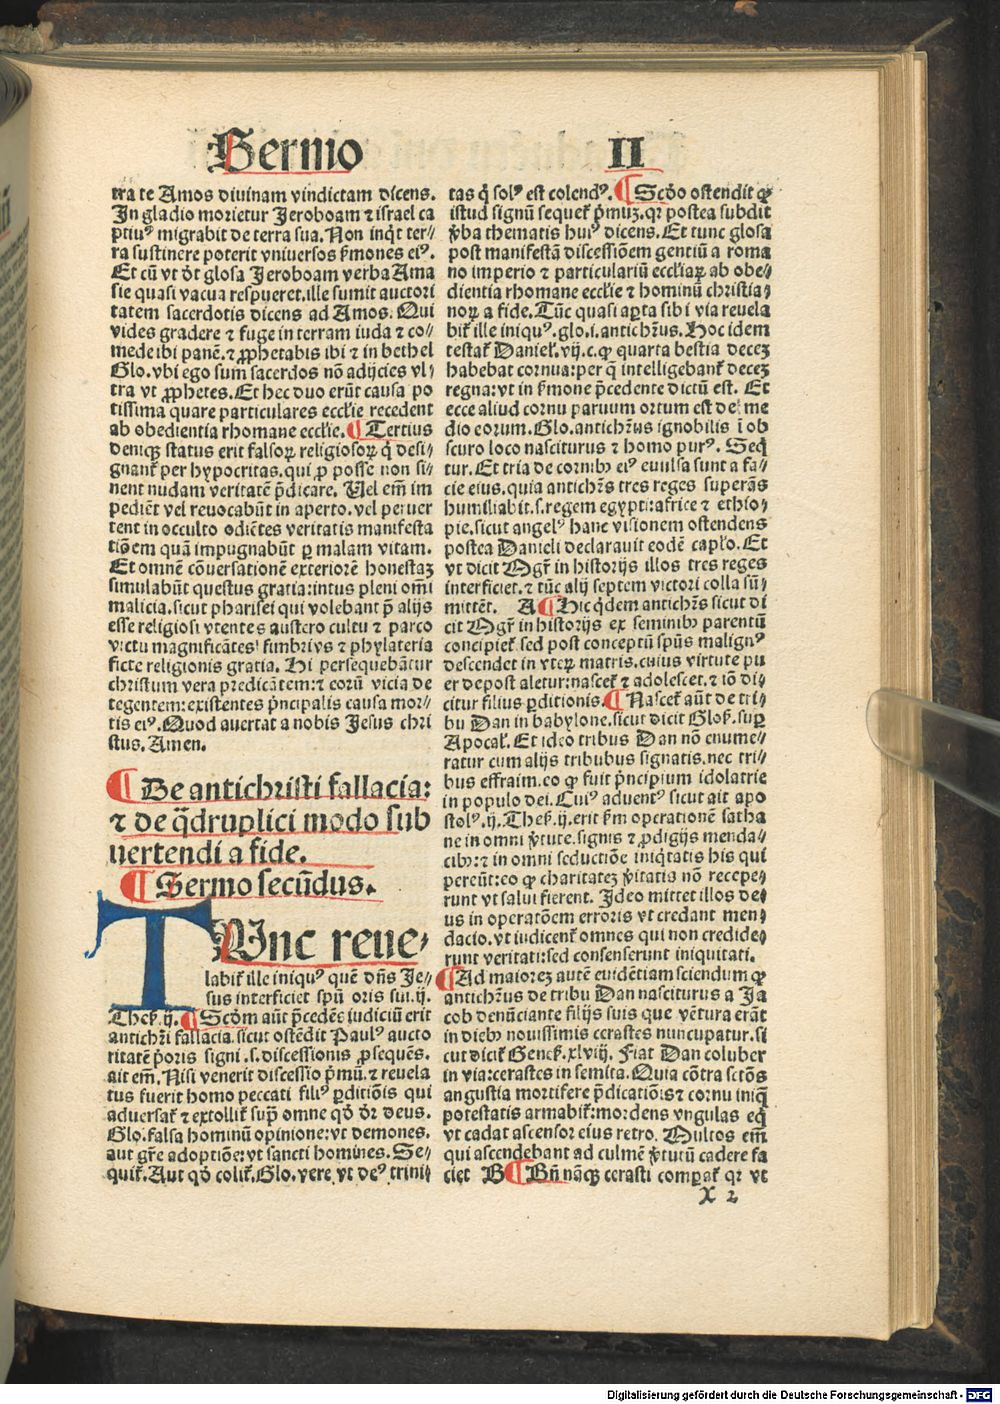 Sermo II
tra te Amos diuinam vindictam dicens.
In gladio morietur Jeroboam ⁊ israel ca
ptiuꝰ migrabit de terra sua. Non inq̇t ter⸗
ra sustinere poterit vniuersos ẜmones eiꝰ.
Et cū vt dr̄t glosa Jeroboam verba Ama
sie quasi vacua respueret. ille sumit auctori
tatem sacerdotis dicens ad Amos. Qui
vides gradere ⁊ fuge in terram iuda ⁊ co⸗
mede ibi panē. ⁊ ꝓphetabis ibi ⁊ in bethel
Glo. vbi ego sum sacerdos nō adijcies vl⸗
tra vt ꝓphetes. Et hec duo erūt causa po
tissima quare particulares eccl̄ie recedent
ab obedientia rhomane eccl̄ie. ¶ Tertius
deniqꝫ status erit falsoꝝ religiosoꝝ q̇ desi⸗
gnant̄ per hypocritas. qui ꝓ posse non si⸗
nent nudam veritatē p̄dicare. Uel em̄ im
pediēt vel reuocabūt in aperto. vel peruer
tent in occulto odiētes veritatis manifesta
tiōem quā impugnabūt ꝑ malam vitam.
Et omnē cōuersationē exteriorē honestaꝫ
simulabūt questus gratia: intus pleni om̄i
malicia. sicut pharisei qui volebant p̄ alijs
esse religiosi vtentes austero cultu ⁊ parco
victu magnificātes fimbrias ⁊ phylateria
ficte religionis gratia. Hi persequebātur
christum vera predicātem: ⁊ eorū vicia de
tegentem: existentes p̄ncipalis causa mor⸗
tis eiꝰ. Quod auertat a nobis Jesus chri
stus. Amen.
¶ De antichristi fallacia:
⁊ de q̄druplici modo sub
uertendi a fide.
¶ Sermo secūdus.
TUnc reue⸗
labit̄ ille iniquꝰ quē dn̄s Je⸗
sus interficiet spū oris sui. ij.
Thes̄. ij. ¶ Scd̄m aūt p̄cedēs iudiciū erit
antichr̄i fallacia. sicut ostēdit Paulꝰ aucto
ritatē p̄oris signi .s. discessionis ꝓsequēs.
ait em̄. Nisi venerit discessio p̄mū. ⁊ reuela
tus fuerit homo peccati filiꝰ ꝑditiōis qui
aduersat̄ ⁊ extollit̄ supꝛ̄ omne qd̄ dr̄ deus.
Glo. falsa hominū opinione: vt demones.
aut gr̄e adoptiōe: vt sancti homines. Se⸗
quit̄. Aut qd̄ colit̄. Glo. vere vt deꝰ trini⸗
tas q̇ solꝰ est colendꝰ. ¶ Scd̄o ostendit ꝙ
istud signū sequet̄ p̄muꝫ. qꝛ postea subdit
v̄ba thematis huiꝰ dicens. Et tunc glosa
post manifestā discessiōem gentiū a roma
no imperio ⁊ particulariū eccl̄iaꝝ ab obe⸗
dientia rhomane eccl̄ie ⁊ hominū christia⸗
noꝝ a fide. Tūc quasi aꝑta sibi via reuela
bit̄ ille iniquꝰ. glo. i. antichr̄us. Hoc idem
testat̄ Daniel̄. vij. c. ꝙ quarta bestia deceꝫ
habebat cornua: per q̄ intelligebant̄ deceꝫ
regna: vt in ẜmone p̄cedente dictū est. Et
ecce aliud cornu paruum ortum est de me
dio eorum. Glo. antichr̄us ignobilis ⁊ ī ob
scuro loco nasciturus ⁊ homo purꝰ. Seq̄
tur. Et tria de cornibꝰ eiꝰ euulsa sunt a fa⸗
cie eius. quia antichr̄s tres reges superās
humiliabit .s. regem egypti: africe ⁊ ethio⸗
pie. sicut angelꝰ hanc visionem ostendens
postea Danieli declarauit eodē capl̄o. Et
vt dicit Mgr̄ in historijs illos tres reges
interficiet. ⁊ tūc alij septem victori colla sū⸗
mittēt. A ¶ Hic q̇dem antichr̄s sicut di
cit Mgr̄ in historijs ex seminibꝰ parentū
concipiet̄. sed post conceptū spūs malignꝰ
descendet in vterꝝ matris. cuius virtute pu
er depost aletur: nascet̄ ⁊ adolescet. ⁊ iō di⸗
citur filius ꝑditionis. ¶ Nascet̄ aūt de tri⸗
bu Dan in babylone. sicut dicit Glos̄. suꝑ
Apocal̄. Et ideo tribus Dan nō enume⸗
ratur cum alijs tribubus signatis. nec tri⸗
bus effraim. eo ꝙ fuit p̄ncipium idolatrie
in populo dei. Cuiꝰ aduentꝰ sicut ait apo
stolꝰ. ij. Thes̄. ij. erit ẜm operationē satha
ne in omni v̄tute. signis ⁊ ꝓdigijs menda⸗
cibꝰ: ⁊ in omni seductiōe iniq̇tatis his qui
pereūt: eo ꝙ charitateꝫ v̄itatis nō recepe⸗
runt vt salui fierent. Ideo mittet illos de⸗
us in operatōem erroris vt credant men⸗
dacio. vt iudicent̄ omnes qui non credide⸗
runt veritati: sed consenserunt iniquitati.
¶ Ad maioreꝫ autē euidētiam sciendum ꝙ
antichr̄us de tribu Dan nasciturus a Ja
cob denūciante filijs suis que vētura erāt
in diebꝰ nouissimis cerastes nuncupatur. si
cut dicit̄ Genes̄. xlviij. Fiat Dan coluber
in via: cerastes in semita. Quia cōtra sctōs
angustia mortifere p̄dicatiōis: ⁊ cornu iniq̄
potestatis armabit̄: mordens vngulas eq̇
vt cadat ascensor eius retro. Multos em̄
qui ascendebant ad culmē v̄tutū cadere fa
ciet B ¶ Bn̄ nāqꝫ cerasti comꝑat̄ qꝛ vt
X 2
Digitalisierung gefördert durch die Deutsche Forschungsgemeinschaft - DFG